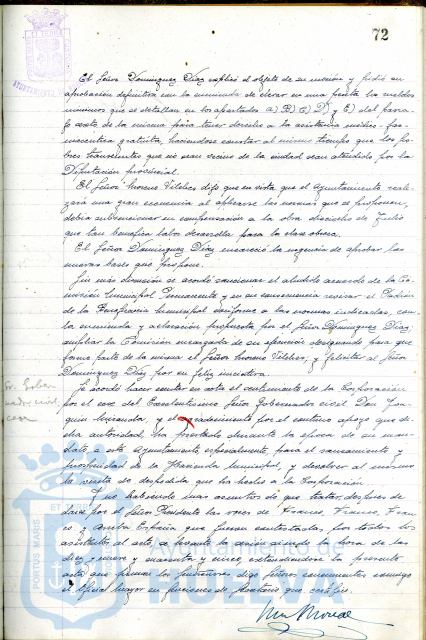 72
El Señor Dominguez Diaz explicó el objeto de su moción y pidió su
aprobación definitiva con la enmienda de elevar en una peseta los sueldos
mínimos que se detallan en los apartados a) B) C) D) y E) del parra-
fo sexto de la misma para tener derecho a la asistencia médico-far-
maceutica gratuita, haciendose constar al mismo tiempo que los po-
bres transeuntes que no sean vecinos de la ciudad sean atendidos por la
Diputación provincial.
El Señor Moreno Vilches dijo que en vista que el Ayuntamiento reali-
zará una gran economia al aplicarse las normas que se proponen,
debía subvencionar en compensación a la obra dieciocho de Julio
que tan benefica labor desarrolla para la clase obrera.
El Señor Dominguez Diaz encareció la urgencia de aprobar las
nuevas bases que propone.
Sin mas discusión se acordó sancionar el aludido acuerdo de la Co-
misión Municipal Permanente y en su consecuencia revisar el Padrón
de la Beneficencia Municipal conforme a las normas indicadas, con
la enmienda y aclaración propuesta por el Señor Dominguez Diaz,
ampliar la Comisión encargada de su ejecución designando para que
forme parte de la misma el Señor Moreno Vilches, y felicitar al Señor
Dominguez Diaz por su feliz iniciativa.
Sr. Gober
nador civil,
cese
Se acordó hacer constar en acta el sentimiento de la Corporación
por el cese del Excelentisimo Señor Gobernador civil Don Joa-
quin Miranda, y el agradecimiento por el continuo apoyo que di-
cha autoridad, ha prestado durante la época de su man-
dato a este Ayuntamiento especialmente para el saneamiento y
prosperidad de la Hacienda Municipal, y devolver al mismo
la visita de despedida que ha hecho a la Corporación.
Y no habiendo mas asuntos de que tratar, despues de
darse por el Señor Presidente las voces de Franco, Franco, Fran-
co y Arriba España que fueron contestadas por todos los
asistentes al acto, se levantó la sesión siendo la hora de las
diez y nueve y cuarenta y cinco extendiendose la presente
acta que firman los Señores, digo Señores concurrentes conmigo
el Oficial Mayor en funciones de Secretario que certifico.
Ayuntamiento de
HUELVA
PORTUS MARIS